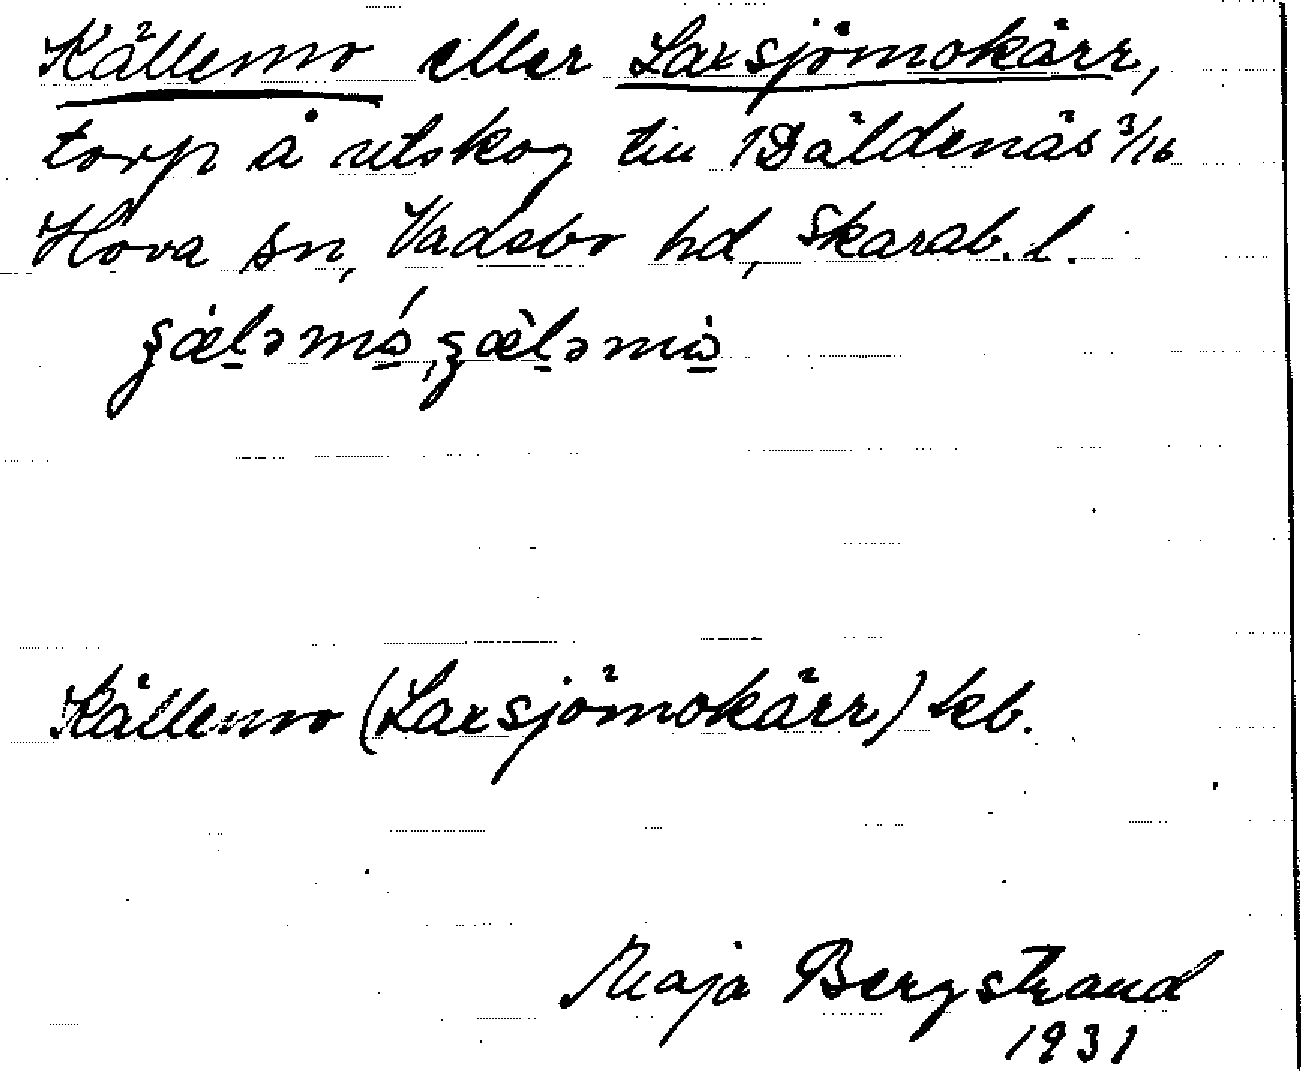 Källemo eller Laxsjömokärr,
torp å utskog till 1 Däldenäs 3/16
Hova sn, Vadsbo hd, Skarab. l.
Källemo (Laxsjömokärr) kb.
Maja Bergstrand
1931